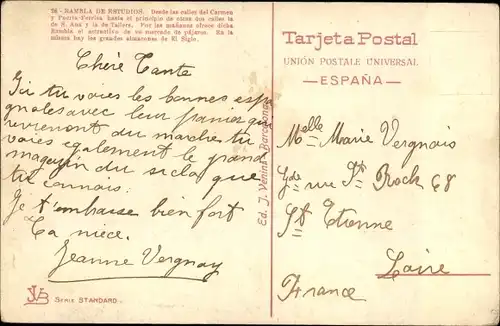 28 - RAMBLA DE ESTUDIOS. Desde las calles del Carmen
y Puerta-Ferrisa hasta el principio de otras dos calles la
de S. Ana y la de Tallers. Por las mañanas ofrece dicha
Rambla el actractivo de un mercado de pájaros. En la
misma hay los grandes almacenes de El Siglo.
Chère Tante
Ici tu voies les bonnes espa
gnoles avec leur panier qui
reviennent du marche tu
voies egalement le grand
magazin du sicla que
tu connais.
Je t'embrasse bien fort
Ta niece.
Jeanne Vergnay
JVB
Serie STANDARD.
Ed. J. Venini - Barcelona
Tarjeta Postal
UNIÓN POSTALE UNIVERSAL
—ESPAÑA—
Melle Marie Vergnais
Gde rue St Roch 68
St Etienne
Loire
France